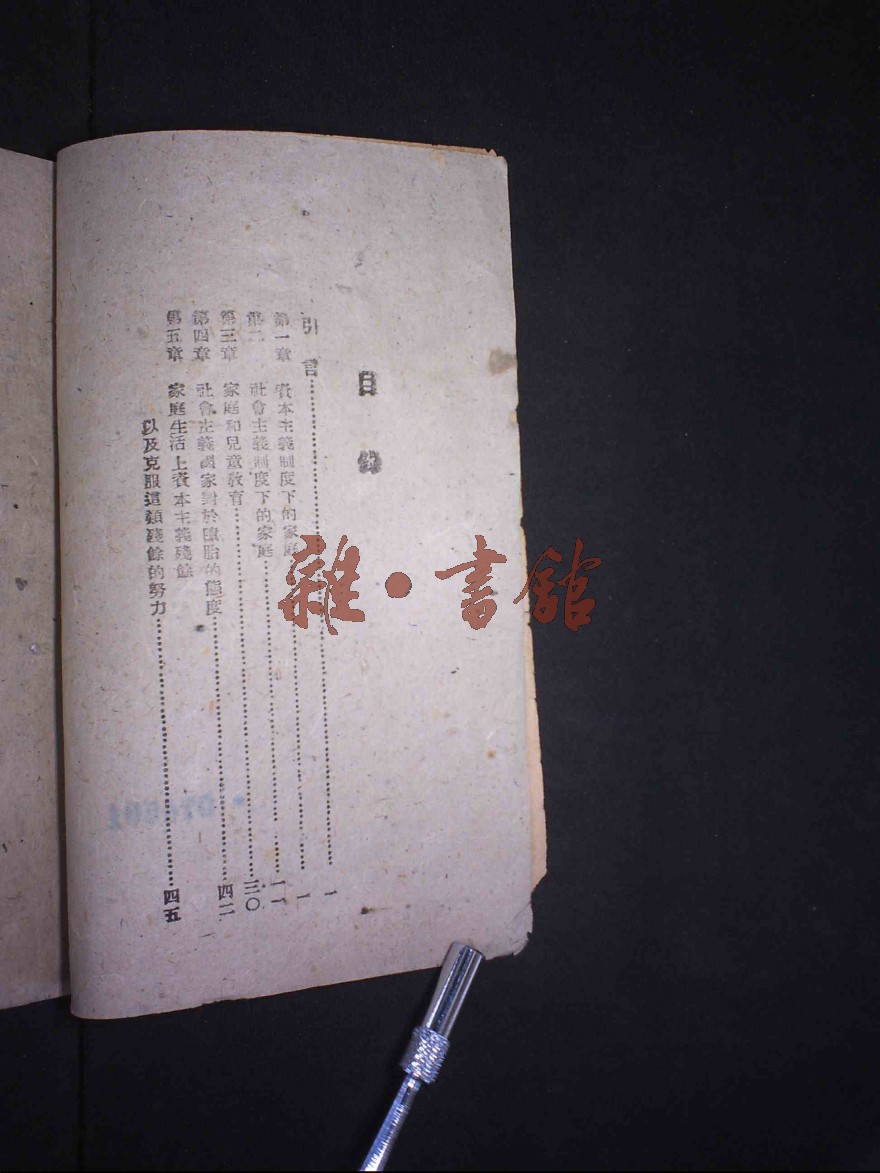 目錄
引言………一
第一章 資本主義制度下的家庭………一
第二 社會主義制度下的家庭………一一
第三章 家庭和兒童教育………三〇
第四章 社會主義國家對於墮胎的態度………四二
第五章 家庭生活上資本主義殘餘
以及克服這類殘餘的努力………四五
雜·書館